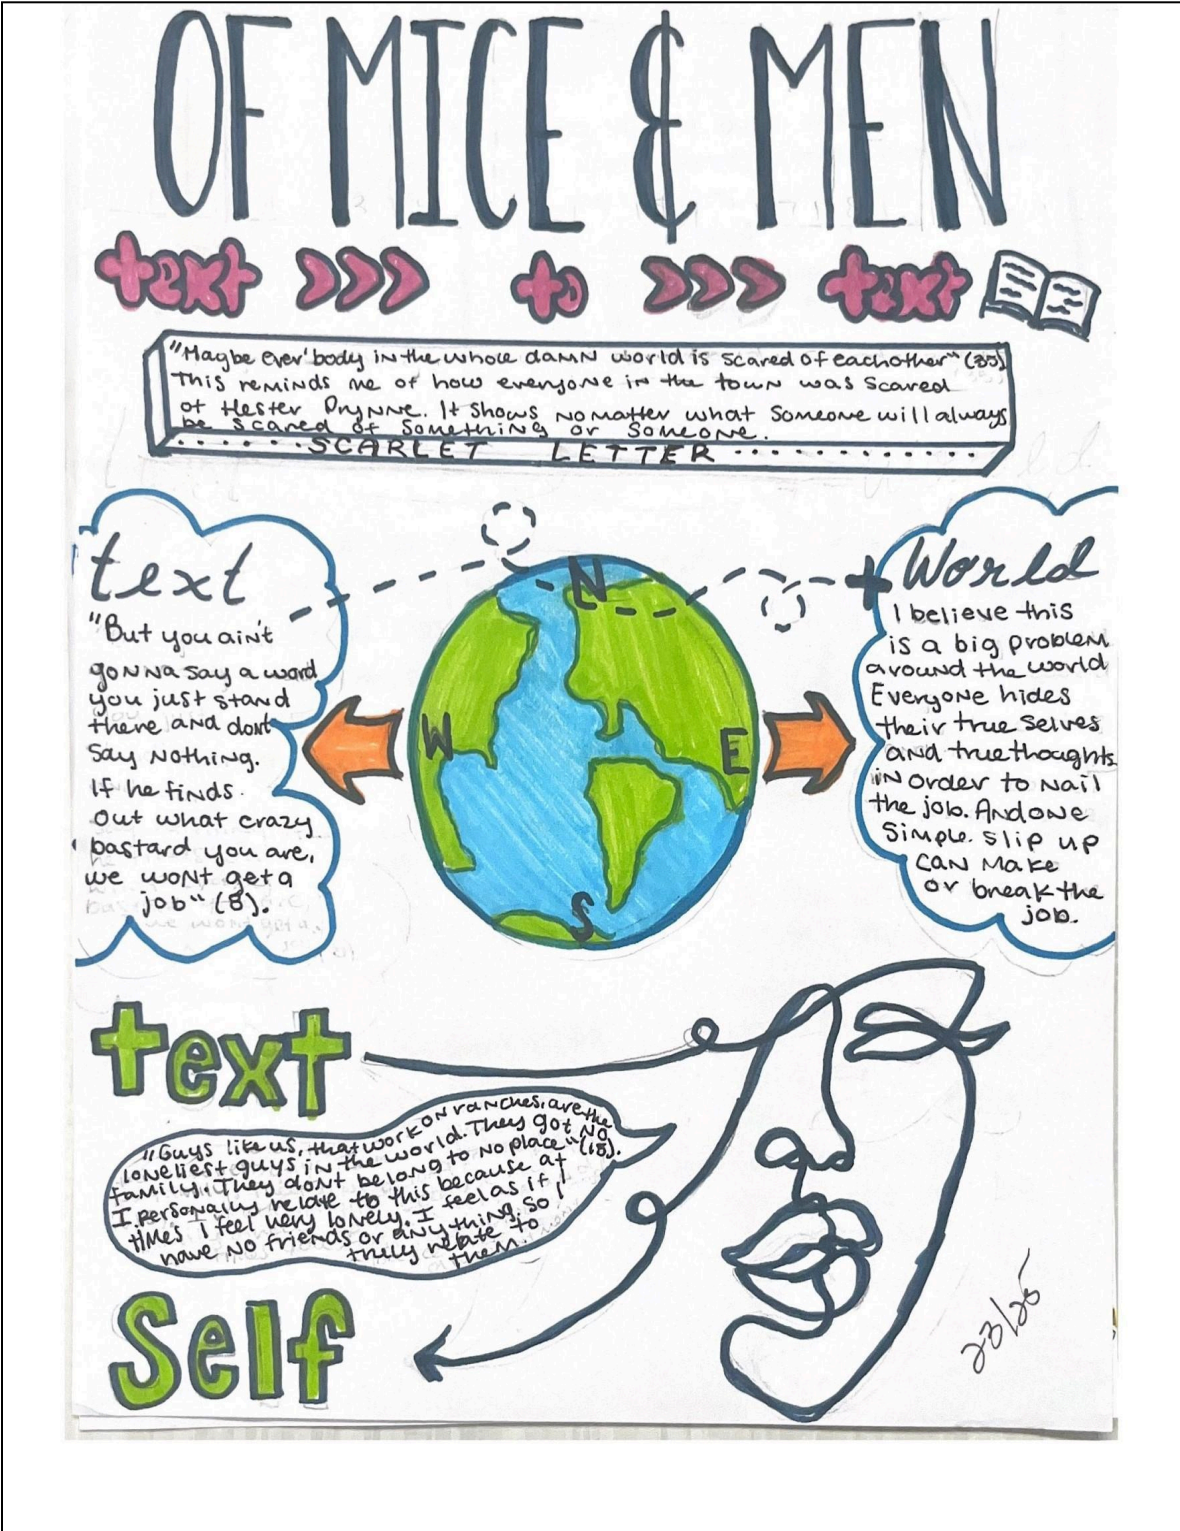 OF MICE & MEN
text >>> to >>> text
"Maybe ever'body in the whole damn world is scared of eachother" (35)
This reminds me of how everyone in the town was scared
of Hester Prynne. It shows no matter what someone will always
be scared of something or someone.
SCARLET LETTER
text
"But you ain't
gonna say a word
you just stand
there and dont
say nothing.
If he finds
out what crazy
bastard you are,
we wont get a
job" (8).
N
W
E
S
World
I believe this
is a big problem
around the world
Everyone hides
their true selves
and true thoughts
in order to nail
the job. And one
simple slip up
can make
or break the
job.
text
"Guys like us, that work on ranches, are the
loneliest guys in the world. They got no
family. They dont belong to no place"
I personally relate to this because at
times I feel very lonely. I feel as if I
have no friends or anything. So I
truly relate to
them.
Self
23/25